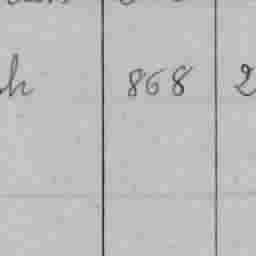 h 868 2